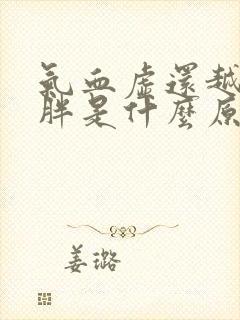 氣血虛還越
胖是什麼原
姜璐